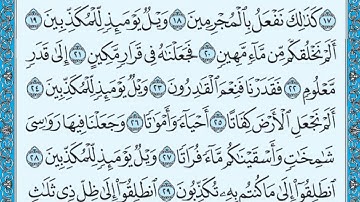 ١٧ كَذَٰلِكَ نَفْعَلُ بِالْمُجْرِمِينَ ١٨ وَيْلٌ يَوْمَئِذٍ لِّلْمُكَذِّبِينَ ١٩
أَلَمْ نَخْلُقكُّم مِّن مَّاءٍ مَّهِينٍ ٢٠ فَجَعَلْنَاهُ فِي قَرَارٍ مَّكِينٍ ٢١ إِلَىٰ قَدَرٍ
مَّعْلُومٍ ٢٢ فَقَدَرْنَا فَنِعْمَ الْقَادِرُونَ ٢٣ وَيْلٌ يَوْمَئِذٍ لِّلْمُكَذِّبِينَ ٢٤
أَلَمْ نَجْعَلِ الْأَرْضَ كِفَاتًا ٢٥ أَحْيَاءً وَأَمْوَاتًا ٢٦ وَجَعَلْنَا فِيهَا رَوَاسِيَ
شَامِخَاتٍ وَأَسْقَيْنَاكُم مَّاءً فُرَاتًا ٢٧ وَيْلٌ يَوْمَئِذٍ لِّلْمُكَذِّبِينَ ٢٨
انطَلِقُوا إِلَىٰ مَا كُنتُم بِهِ تُكَذِّبُونَ ٢٩ انطَلِقُوا إِلَىٰ ظِلٍّ ذِي ثَلَاثِ